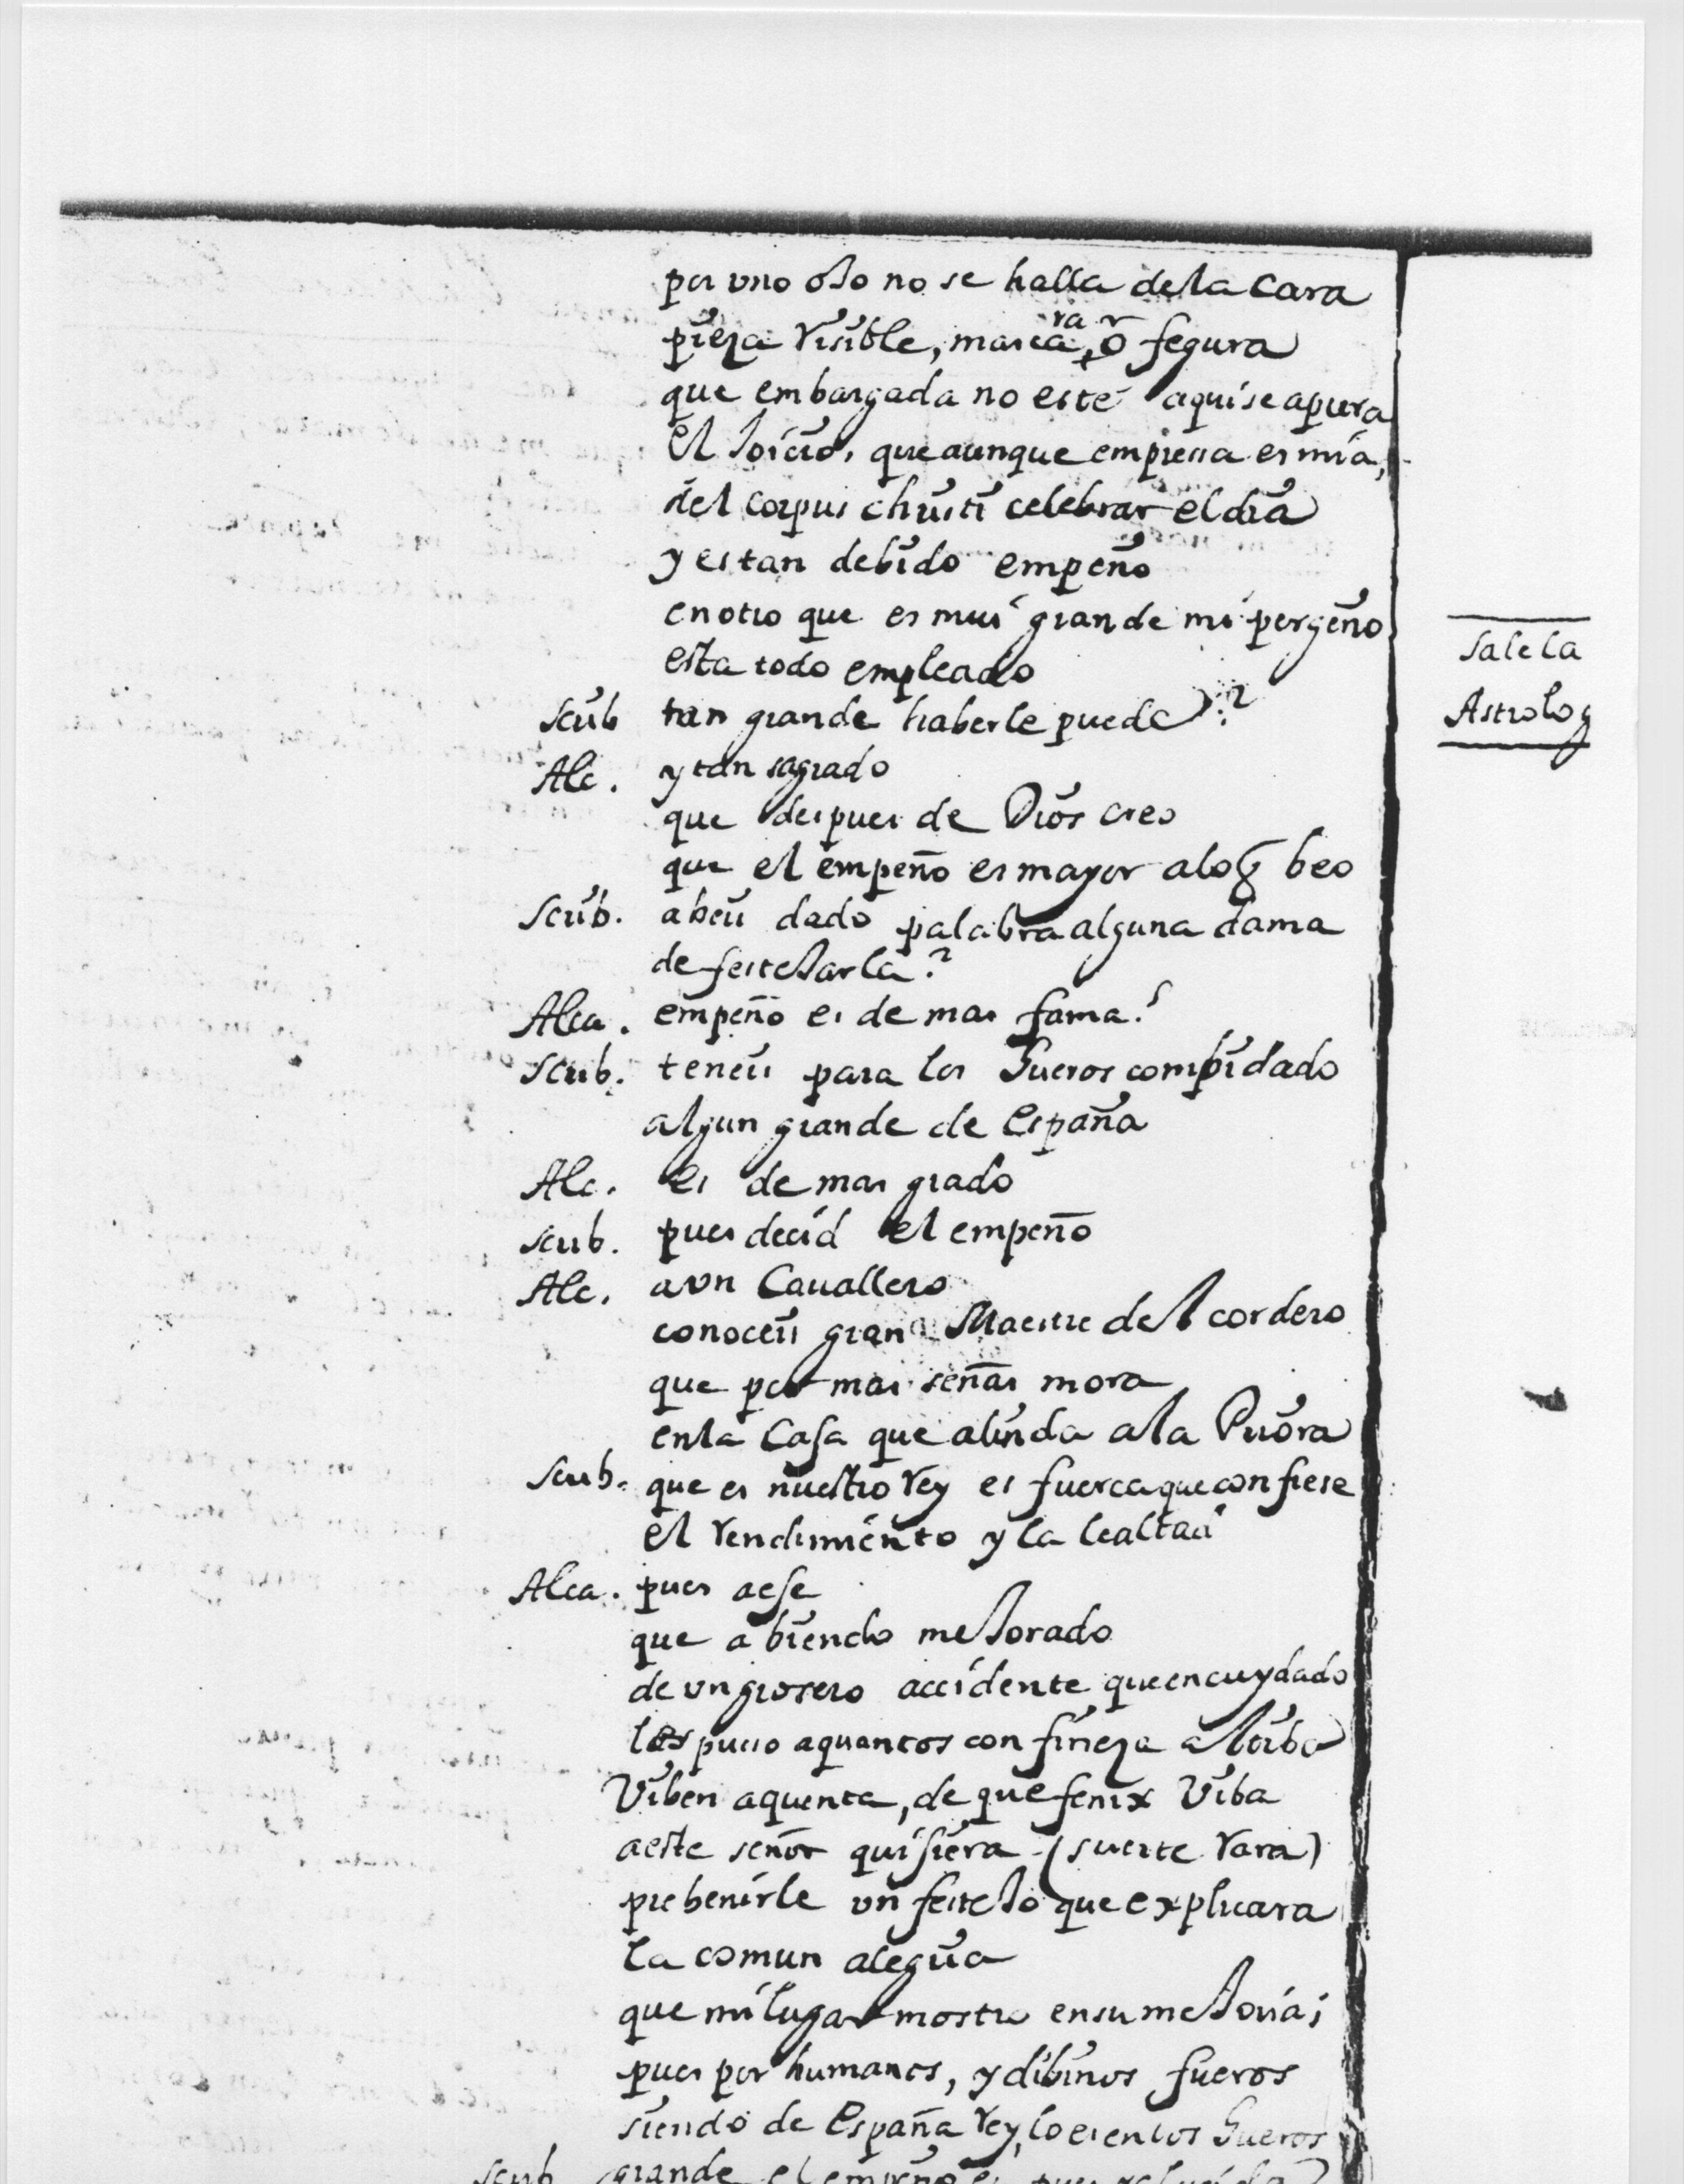 por vno oJo no se halla dela Cara
pieza Visible, marca, ra ō fegura
que embargada no este aqui se apura
El Joicio, que aunque empressa es mia,
del Corpus christi celebrar el dia
y es tan debido empeño
en otro que es mui grande mi pergeño
esta todo empleado
Scrib tan grande haberle puede?
Alc. y tan sagrado
que despues de Dios creo
que el empeño es mayor alo q̃ beo
Scrib. abeis dado palabra alguna dama
de festeJarla?
Alca. empeño es de mas fama!
Scrib. teneis para los Jueros combidado
algun grande de España
Alc. es de mas grado
Scrib. pues decid el empeño
Alc. a vn Cauallero
conoceis gran Maestre del cordero
que por mas señas mora
enla Casa que alinda ala Priora
Scrib. que es nuestro Rey es fuerca que confiese
el Rendimiento y la lealtad
Alca. pues a ese
que abiendo meJorado
de vn grosero accidente que en cuydado
los pusso a quantos con fineza altiba
Viben a quenta, de que fenix Viba
a este señor quisiera (suerte Rara)
prebenirle vn festeJo que explicara
la comun alegria
que mi lugar mostro en su meJoria;
pues por humanos, y dibinos fueros
siendo de España Rey, lo es en los Jueros
Scrib grande el empeño es, pues
Sale la
Astrolog